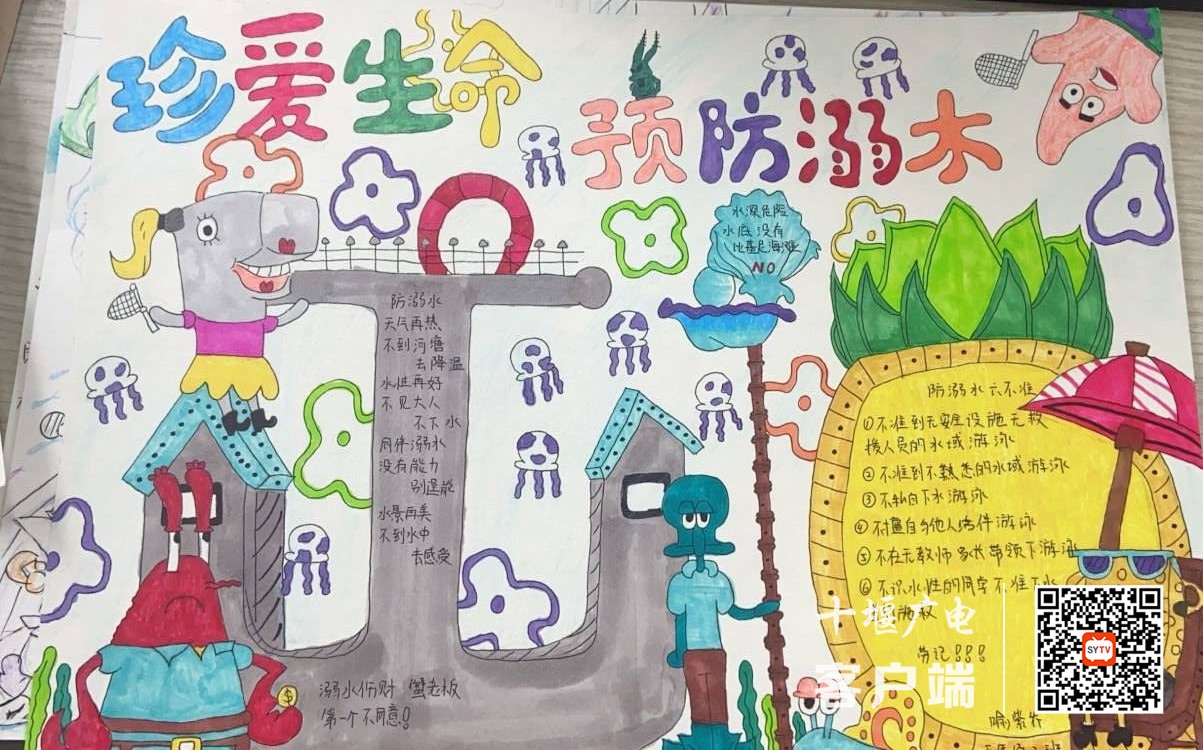 珍爱生命
预防溺水
水深危险
水底没有
比基尼海滩
NO
防溺水
天气再热
不到河塘
去降温
水性再好
不见大人
不下水
同伴溺水
没有能力
别逞能
水景再美
不到水中
去感受
溺水伤财 蟹老板
第一个不同意!
防溺水六不准
①不准到无安全设施无救
援人员的水域游泳
②不准到不熟悉的水域游泳
③不私自下水游泳
④不擅自与他人结伴游泳
⑤不在无教师家长带领下游泳
⑥不识水性的同学不准下水
施救
勿记!!!
喻紫
十堰广电
客户端
SYTV